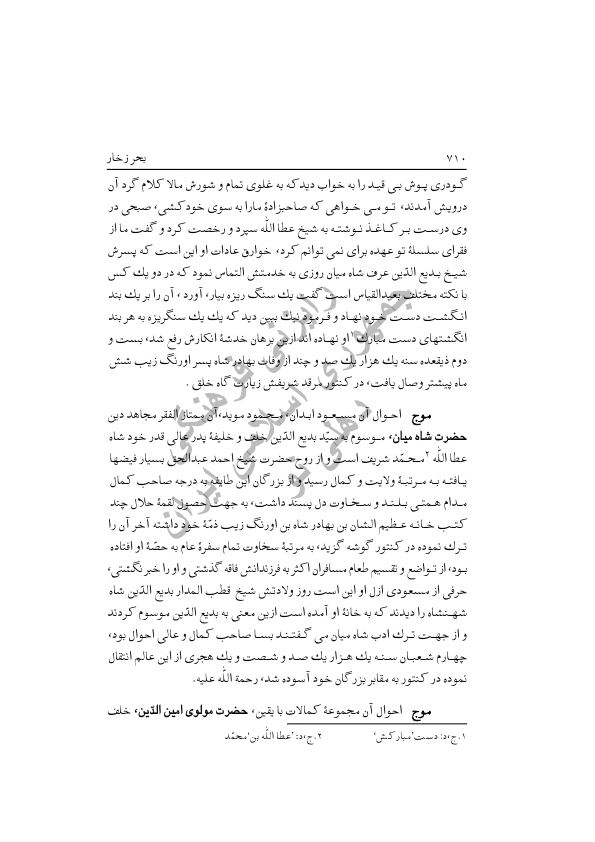 ۷۱۰ بحر زخار
گودری پوش بی قید را به خواب دید که به غلوی تمام و شورش مالا کلام گرد آن
درویش آمدند، تو می خواهی که صاحبزادهٔ مارا به سوی خود کشی، صبحی در
وی درست بر کاغذ نوشته به شیخ عطا اللّه سپرد و رخصت کرد و گفت ما از
فقرای سلسلهٔ تو عهده برای نمی توانم کرد، خوارق عادات او این است که پسرش
شیخ بدیع الدّین عرف شاه میان روزی به خدمتش التماس نمود که در دو یك کس
با نکته مختلف بعیدالقیاس است گفت یك سنگ ریزه بیار، آورد، آن را بر یك بند
انگشت دست خود نهاد و فرمود نیك ببین دید که یك یك سنگریزه به هر بند
انگشتهای دست مبارك۱ او نهاده اند ازین برهان خدشهٔ انکارش رفع شد، بست و
دوم ذیقعده سنه یك هزار یك صد و چند از وفات بهادر شاه پسر اورنگ زیب شش
ماه پیشتر وصال یافت، در کنتور مرقد شریفش زیارت گاه خلق .
موج احوال آن مسعود ابدان، محمود موید، آن ممتاز الفقر مجاهد دین
حضرت شاه میان، موسوم به سیّد بدیع الدّین خلف و خلیفهٔ پدر عالی قدر خود شاه
عطا اللّه ۲محمّد شریف است و از روح حضرت شیخ احمد عبدالحق بسیار فیضها
یافته به مرتبهٔ ولایت و کمال رسید و از بزرگان این طایفه به درجه صاحب کمال
مدام همتی بلند و سخاوت دل پسند داشت، به جهت حصول لقمهٔ حلال چند
کتب خانه عظیم الشان بن بهادر شاه بن اورنگ زیب ذمّهٔ خود داشته آخر آن را
ترك نموده در کنتور گوشه گزید، به مرتبهٔ سخاوت تمام سفرهٔ عام به حصّهٔ او افتاده
بود، از تواضع و تقسیم طعام مسافران اکثر به فرزندانش فاقه گذشتی و او را خبر نگشتی،
حرفی از مسعودی ازل او این است روز ولادتش شیخ قطب المدار بدیع الدّین شاه
شهنشاه را دیدند که به خانهٔ او آمده است ازین معنی به بدیع الدّین موسوم کردند
و از جهت ترك ادب شاه میان می گفتند بسا صاحب کمال و عالی احوال بود،
چهارم شعبان سنه یك هزار یك صد و شصت و یك هجری از این عالم انتقال
نموده در کنتور به مقابر بزرگان خود آسوده شد، رحمة اللّه علیه.
موج احوال آن مجموعهٔ کمالات با یقین، حضرت مولوی امین الدّین، خلف
۱.ج،د: دست'مبارکش' ۲.ج،د: 'عطا اللّه بن'محمّد
رایزنی فرهنگی
جمهوری اسلامی ایران
دهلی نو